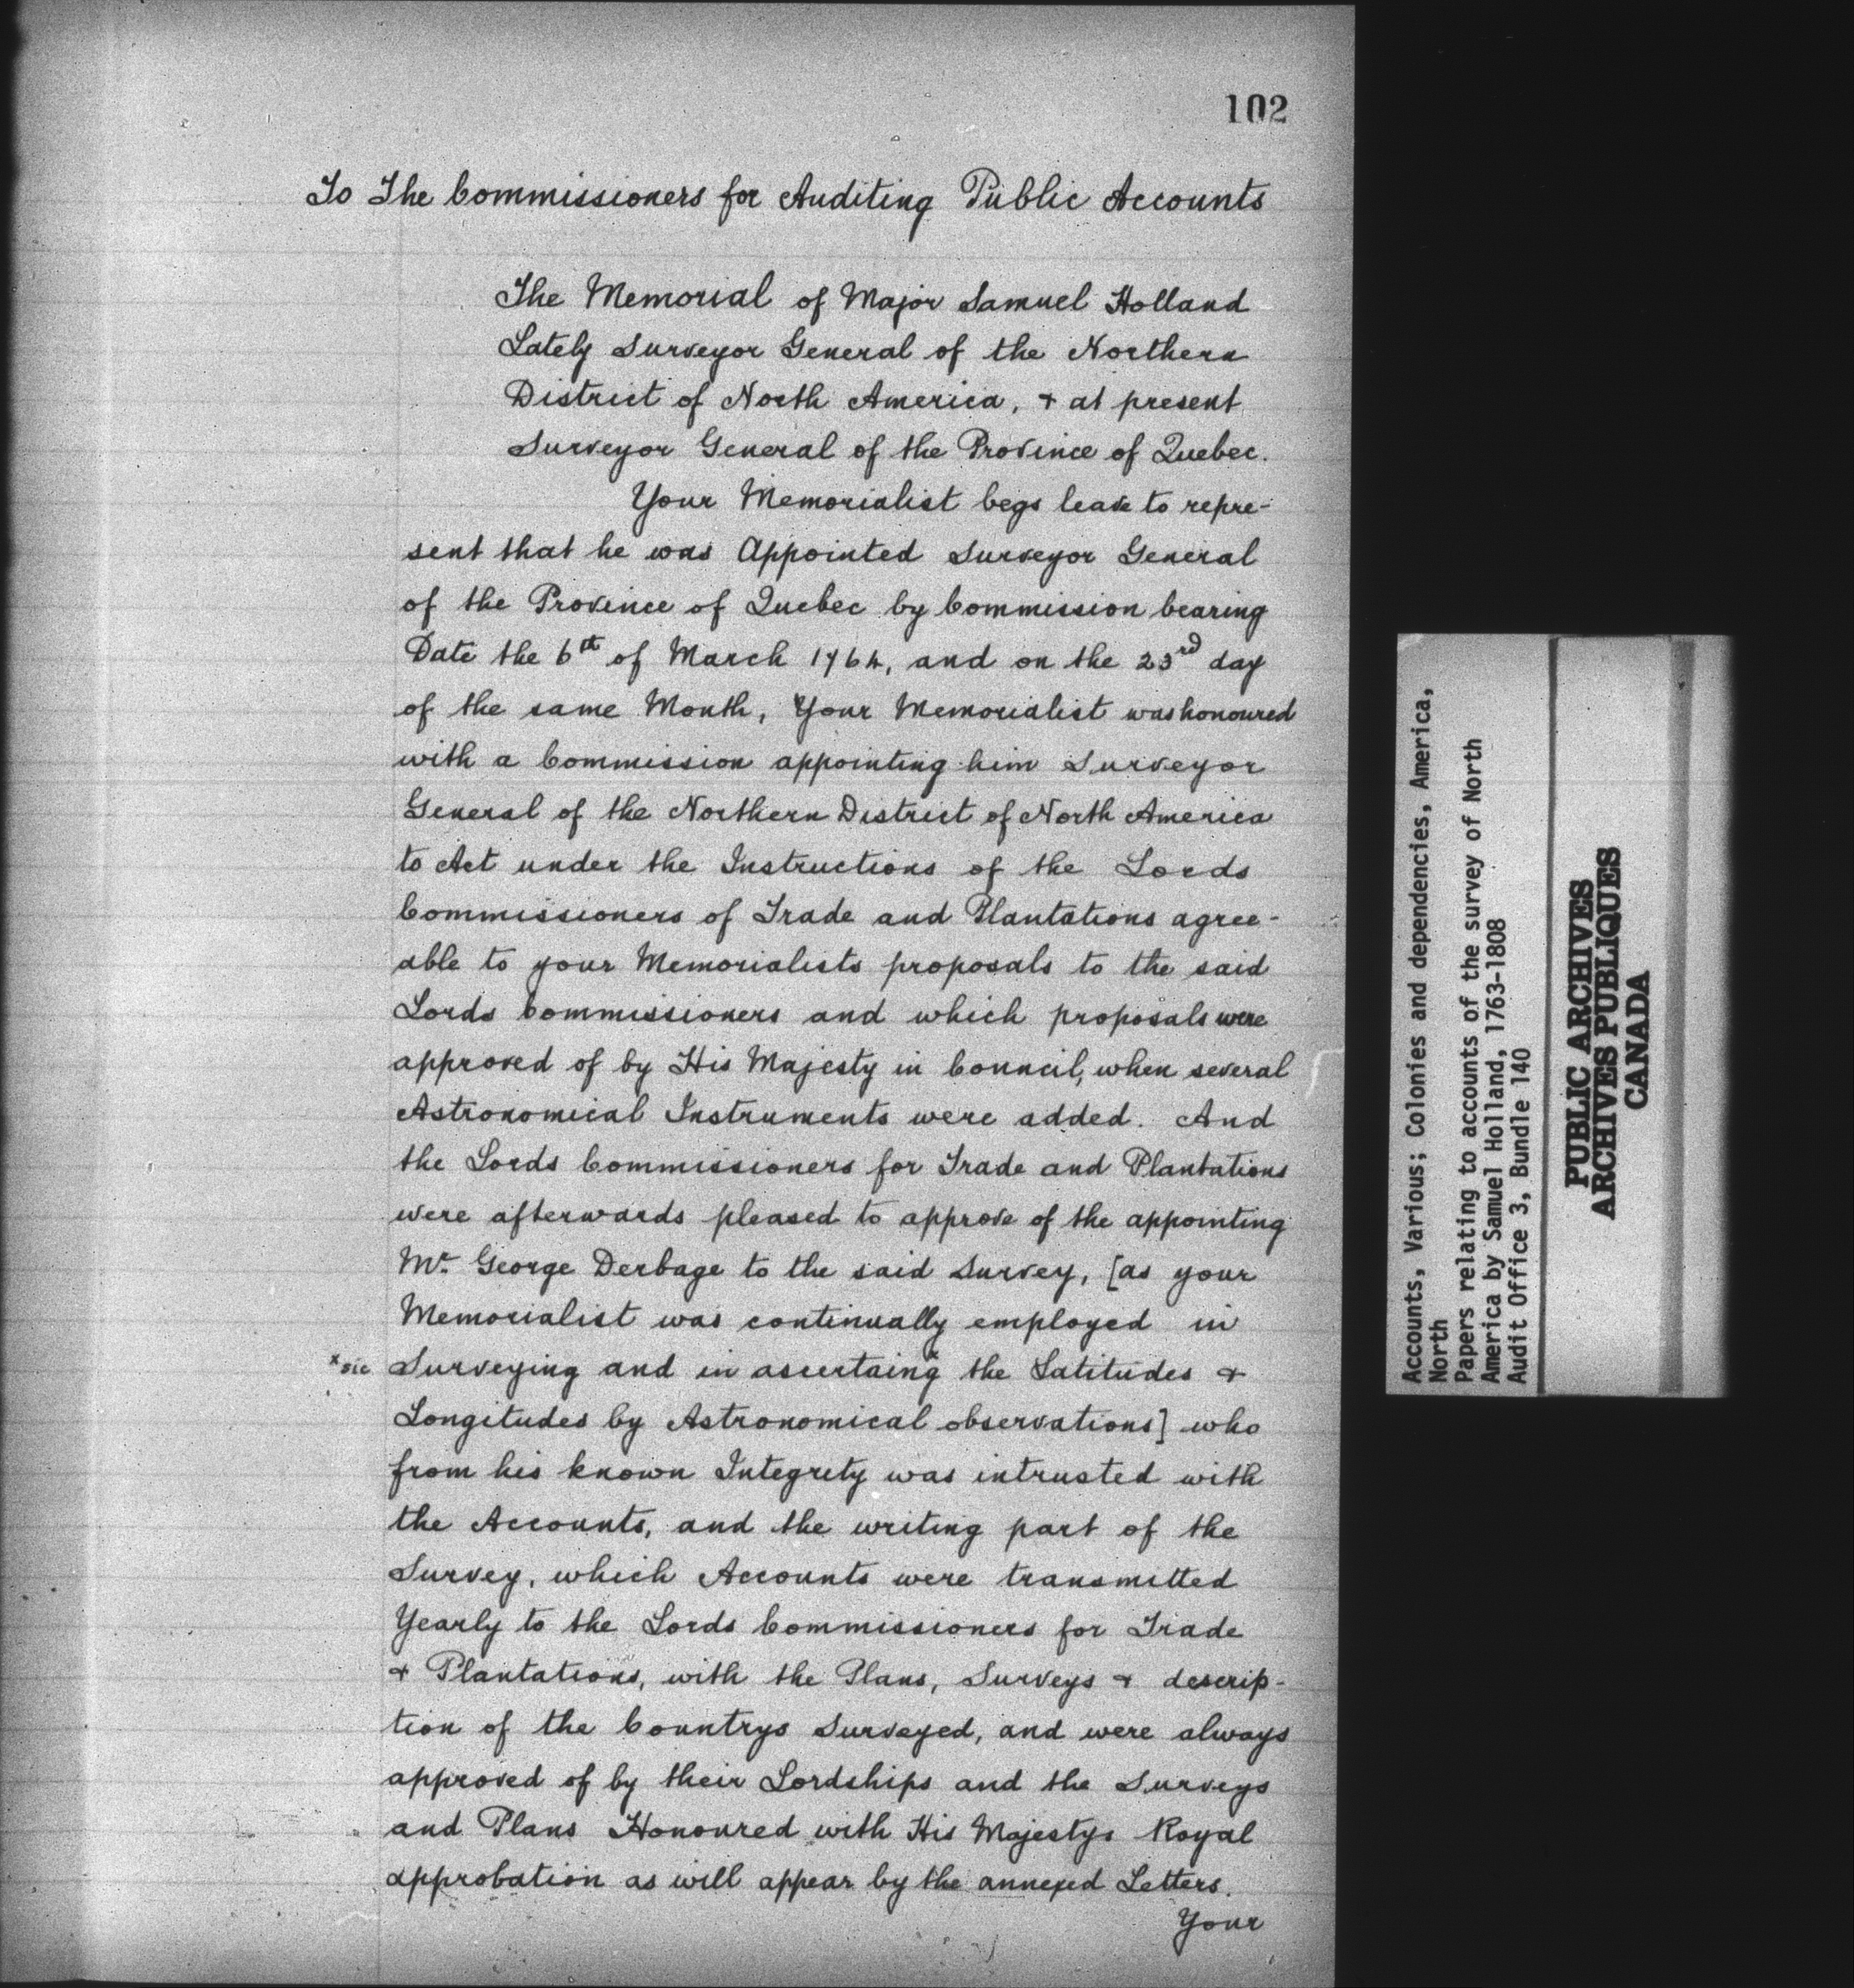 102
To The Commissioners for Auditing Public Accounts
The Memorial of Major Samuel Holland
Lately Surveyor General of the Northern
District of North America, & at present
Surveyor General of the Province of Quebec.
Your Memorialist begs leave to repre-
sent that he was Appointed Surveyor General
of the Province of Quebec by Commission bearing
Date the 6th of March 1764, and on the 23rd day
of the same Month, Your Memorialist was honoured
with a Commission appointing him Surveyor
General of the Northern District of North America
to Act under the Instructions of the Lords
Commissioners of Trade and Plantations agree-
able to your Memorialists proposals to the said
Lords Commissioners and which proposals were
approved of by His Majesty in Council, when several
Astronomical Instruments were added. And
the Lords Commissioners for Trade and Plantations
were afterwards pleased to approve of the appointing
Mr. George Derbage to the said Survey, [as your
Memorialist was continually employed in
x sic Surveying and in ascertaing x the Latitudes &
Longitudes by Astronomical observations] who
from his known Integrity was intrusted with
the Accounts, and the writing part of the
Survey, which Accounts were transmitted
Yearly to the Lords Commissioners for Trade
& Plantations, with the Plans, Surveys & descrip-
tion of the Countrys Surveyed, and were always
approved of by their Lordships and the Surveys
and Plans Honoured with His Majestys Royal
approbation as will appear by the annexed Letters.
Your
Accounts, Various; Colonies and dependencies, America,
North
Papers relating to accounts of the survey of North
America by Samuel Holland, 1763-1808
Audit Office 3, Bundle 140
PUBLIC ARCHIVES
ARCHIVES PUBLIQUES
CANADA